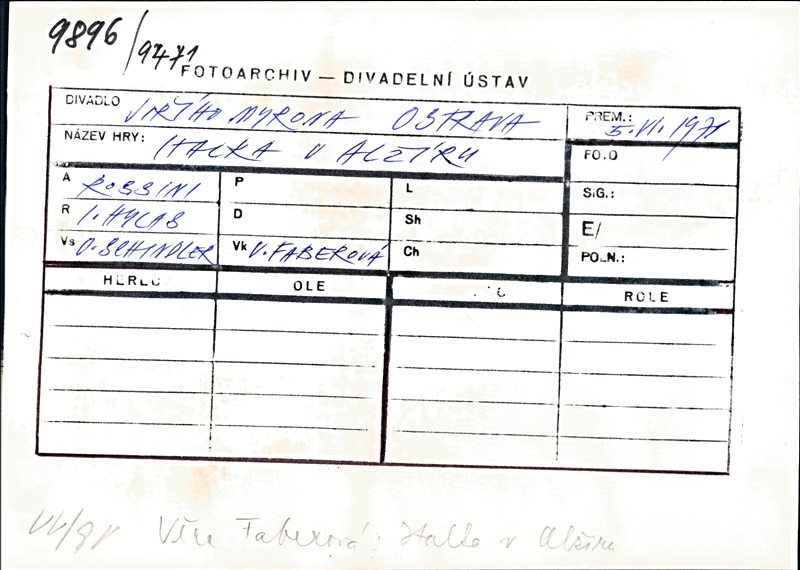 9896/9471
FOTOARCHIV — DIVADELNÍ ÚSTAV
DIVADLO JIŘÍHO MYRONA OSTRAVA
PREM.: 5. VI. 1971
NÁZEV HRY: ITALKA V ALŽÍRU
FO.O
A ROSSINI P L
SiG.:
R I. HYLAS D Sh
E/
Vs O. SCHINDLER Vk V. FABEROVÁ Ch
PO..N.:
HEREC OLE ROLE
Věra Faberová: Italka v Alžíru